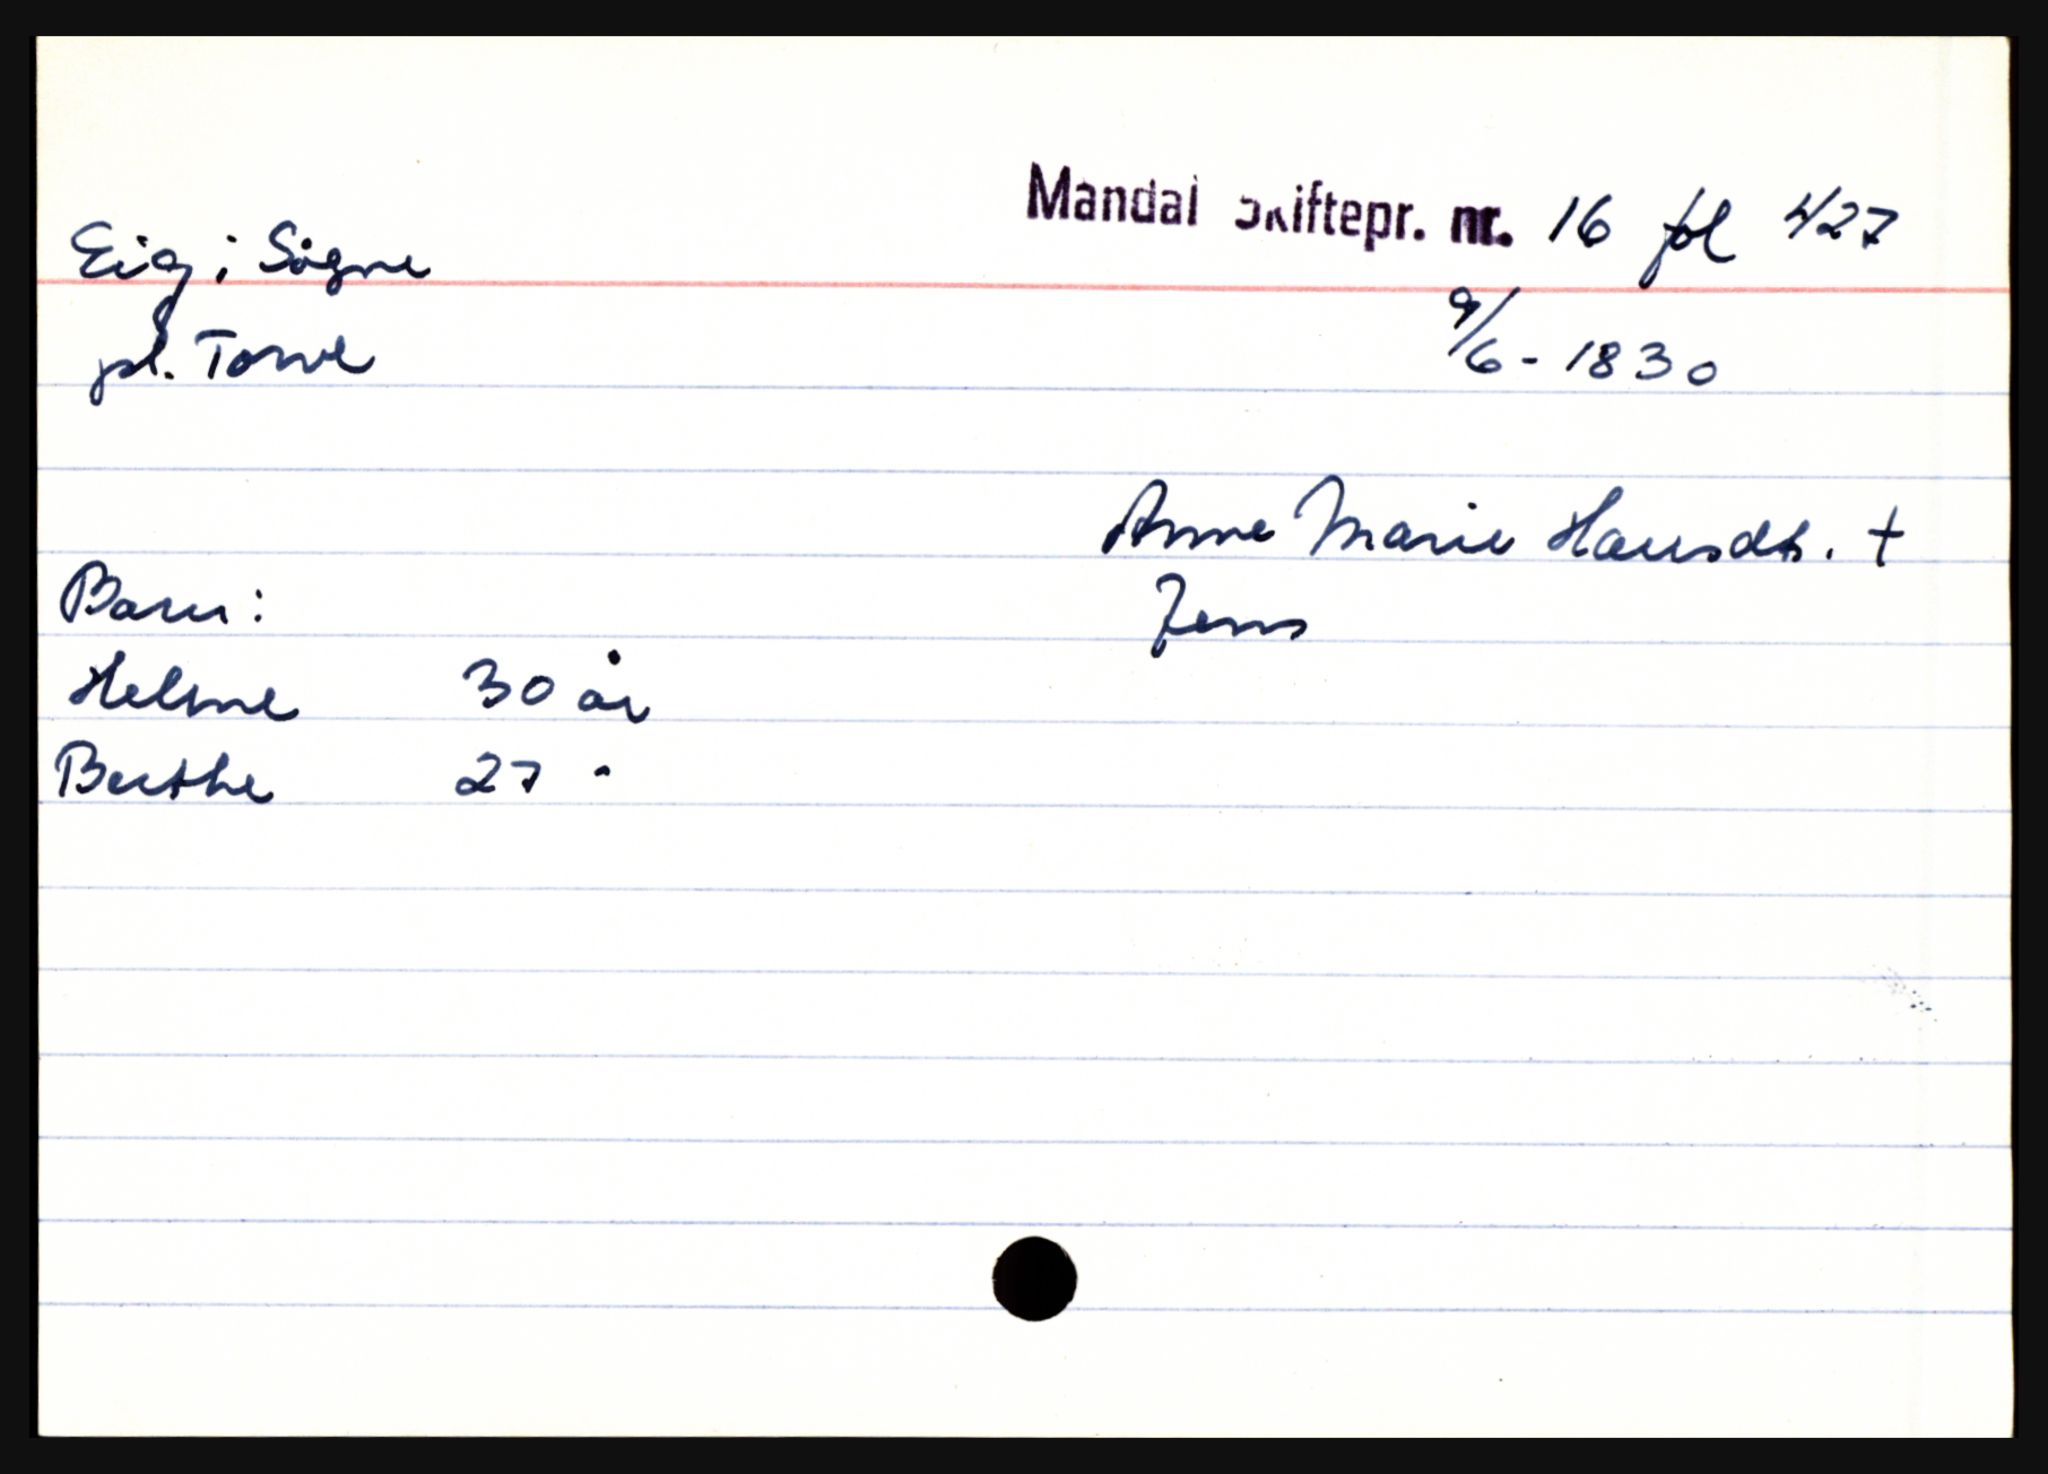 Mandal Skiftepr. nr. 16 fol 427
Eig i Sögne
pl. Tonve
9/6 - 1830
Anne Marie Hansdtr. +
Barn:
Jens
Helene 30 år
Berthe 27 "